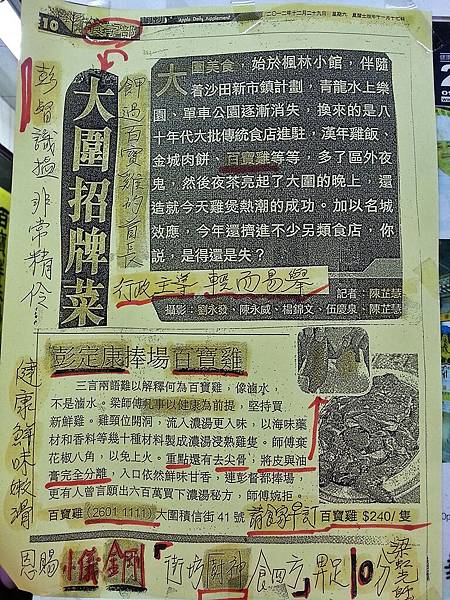 10
飲食部
Apple Daily Supplement
二〇一二年十二月二十九日｜星期六
大圍招牌菜
呷過百寶雞的首長
彭督識搵 非常精伶
大圍美食，始於楓林小館，伴隨
着沙田新市鎮計劃，青龍水上樂
園、單車公園逐漸消失，換來的是八
十年代大批傳統食店進駐，漢年雞飯、
金城肉餅、百寶雞等等，多了區外夜
鬼，然後夜茶亮起了大圍的晚上，還
造就今天雞煲熱潮的成功。加以名城
效應，今年還擠進不少另類食店，你
說，是得還是失？
行政主導 輕而易舉
記者：陳芷慧
攝影：劉永發、陳永威、楊錦文、伍慶泉、陳芷慧
彭定康捧場百寶雞
三言兩語難以解釋何為百寶雞，像滷水，
不是滷水。梁師傅凡事以健康為前提，堅持買
新鮮雞。雞頸位開洞，流入濃湯更入味，以海味藥
材和香料等幾十種材料製成濃湯浸熟雞隻。師傅棄
花椒八角，以免上火。重點還有去尖骨，將皮與油
膏完全分離，入口依然鮮味甘香，連彭督都捧場，
更有人曾言願出六百萬買下濃湯秘方，師傅婉拒。
百寶雞（2601 1111）大圍積信街 41 號
百寶雞 $240/隻
健康鮮味嫩滑
恩賜 小儀金剛「街坊廚神 食四方」畀足10分